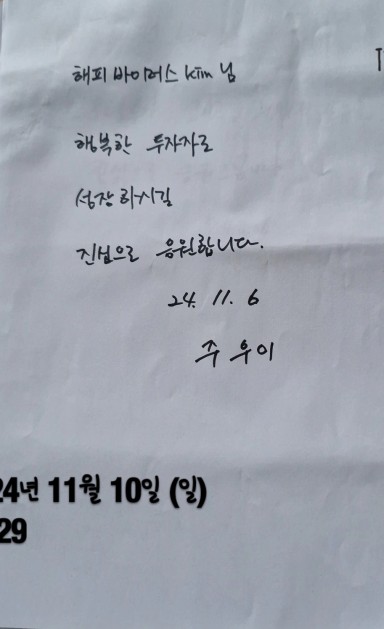 해피바이러스 Kim 님
행복한 투자자로
성장하시길
진심으로 응원합니다.
24. 11. 6
주우이
24년 11월 10일 (일)
29